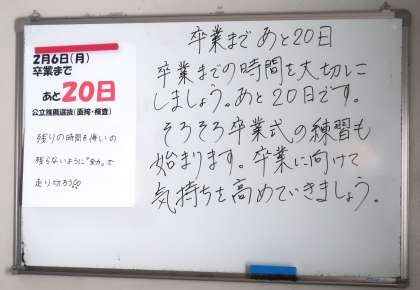 2月6日(月)
卒業まで
あと20日
公立推薦選抜(面接・検査)
残りの時間を悔いの
残らないように"全力"で
走り切ろう
卒業まで あと20日
卒業までの時間を大切に
しましょう。あと20日です。
そろそろ卒業式の練習も
始まります。卒業に向けて
気持ちを高めていきましょう。